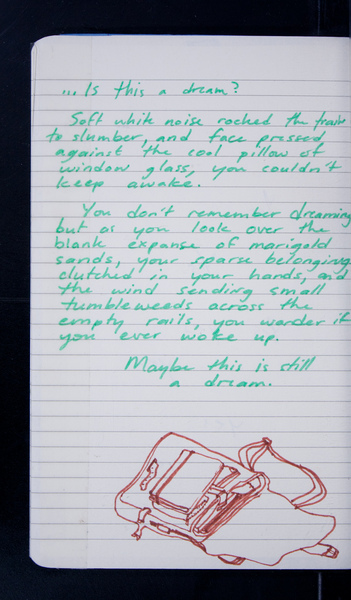 ... Is this a dream?
Soft white noise rocked the train
to slumber, and face pressed
against the cool pillow of
window glass, you couldn't
keep awake.
You don't remember dreaming
but as you look over the
blank expanse of marigold
sands, your sparse belongings
clutched in your hands, and
the wind sending small
tumbleweeds across the
empty rails, you wonder if
you ever woke up.
Maybe this is still
a dream.